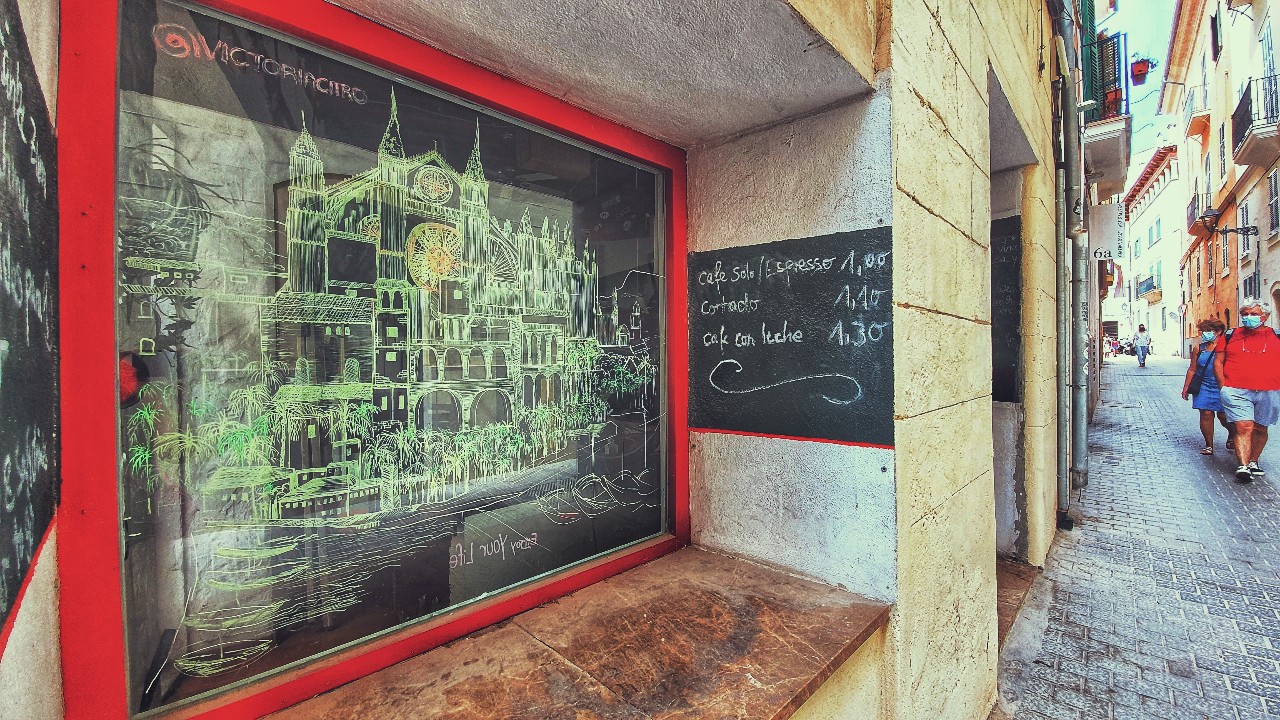 @VICTORIACITRO
Cafe Solo/Espresso 1,00
Cortado 1,10
Cafe con leche 1.30
Enjoy Your Life
6a